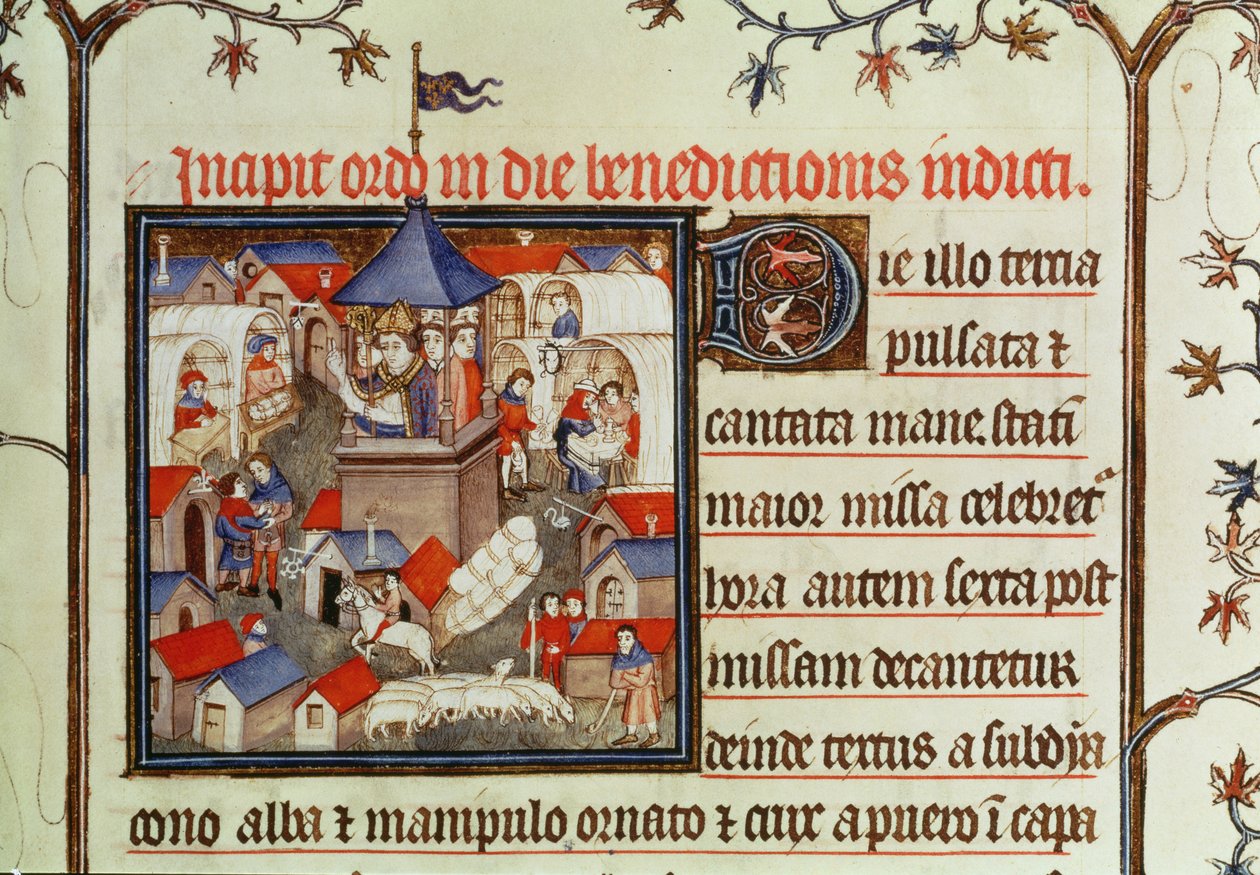 Incipit ordo in die benedictionis indicti.
Die illo tercia
pulsata ⁊
cantata mane. statī
maior missa celebret᷑
hora autem sexta post
missam decantetur
deinde textus a subdya
cono alba ⁊ manipulo ornato ⁊ crux a puero ī capa